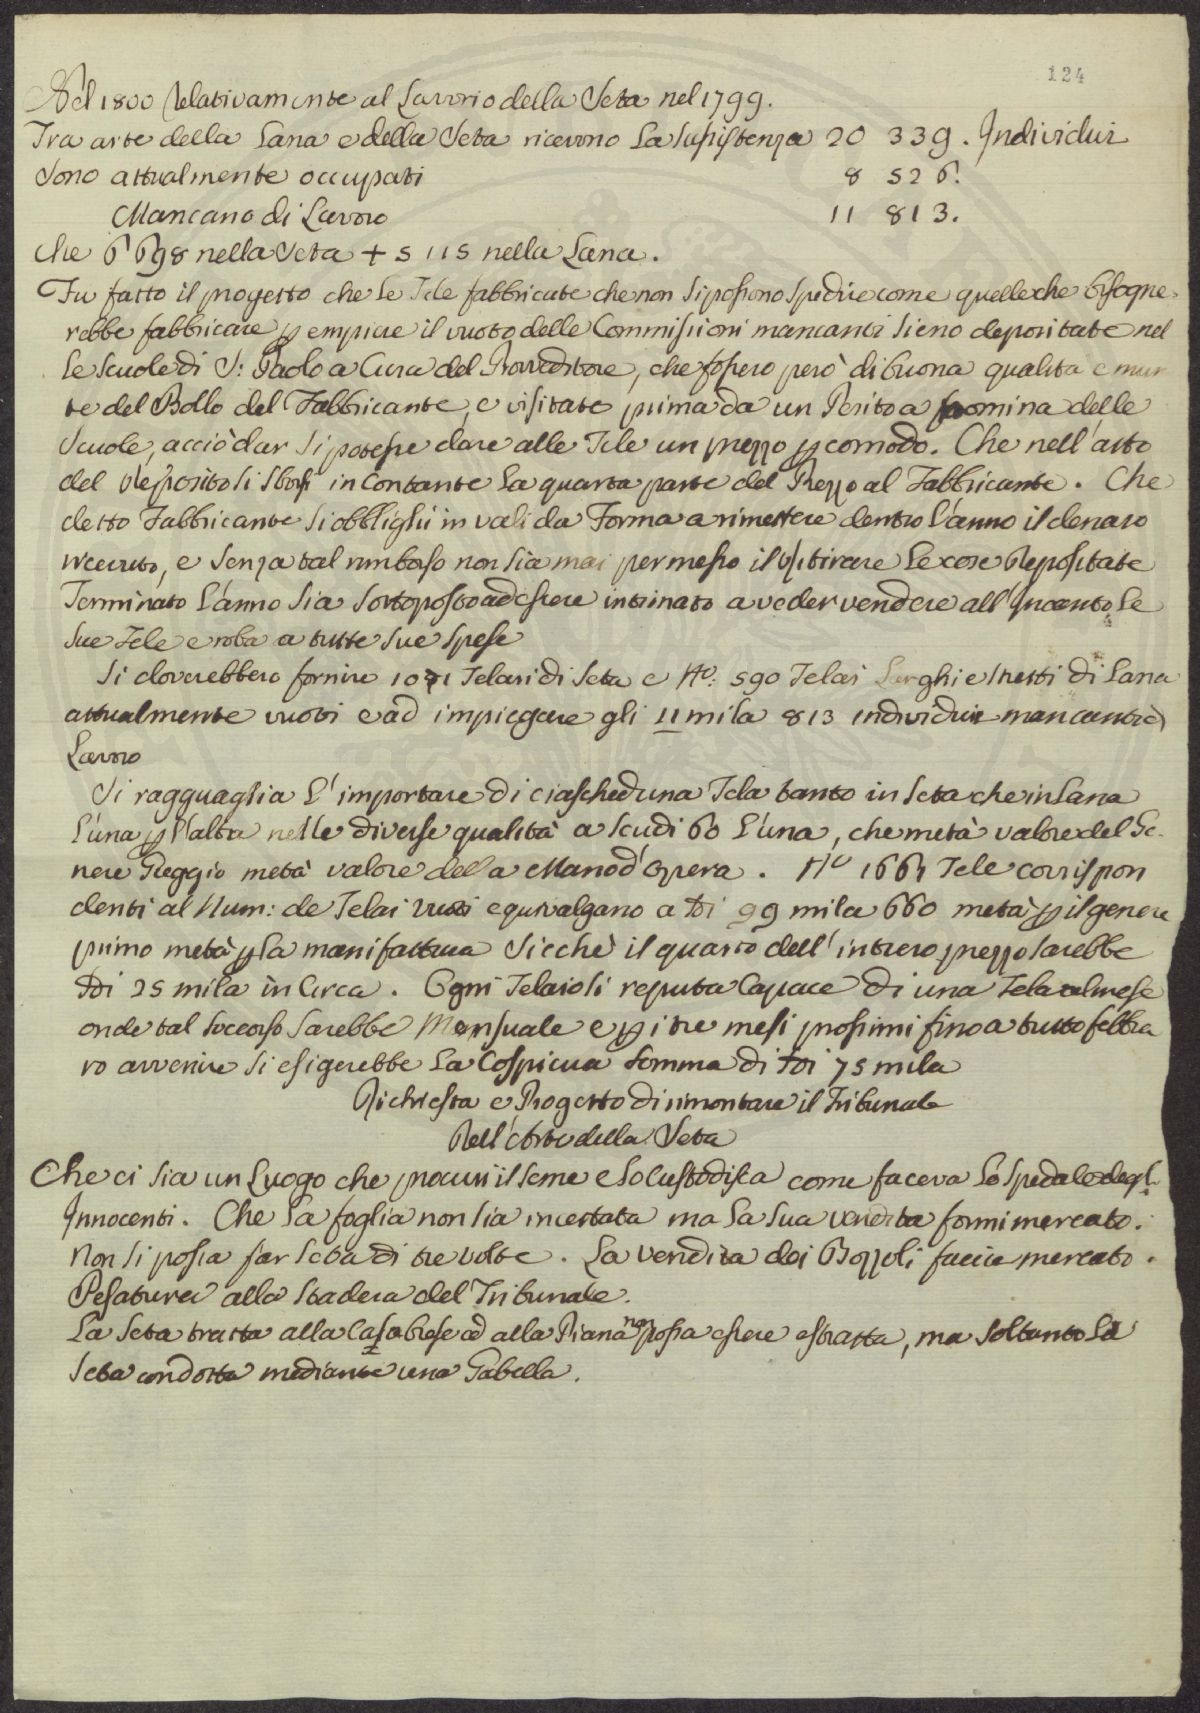 124
Nel 1800 Relativamente al Lavorio della Seta nel 1799.
Tra arte della Lana e della Seta ricevono la susistenza 20 339. Individui
Sono attualmente occupati 8 526.
Mancano di Lavoro 11 813.
che 6 698 nella Seta + 5 115 nella Lana.
Fu fatto il progetto che le Tele fabbricate che non si possono spedire come quelle che bisogne
rebbe fabbricare p empiere il vuoto delle Commissioni mancanti sieno depositate nel
le scuole di S: Paolo a Cura del Provveditore, che fossero però di buona qualita e mun
te del Bollo del Fabbricante, e visitate prima da un Perito a nomina delle
Scuole, acciò dar si potesse dare alle Tele un prezzo p comodo. Che nell'atto
del deposito si sborsi in contante la quarta parte del Prezzo al Fabbricante. Che
detto Fabbricante si obblighi in valida Forma a rimettere dentro l'anno il denaro
ricevuto, e senza tal rimborso non sia mai permesso il ritirare le cose depositate
Terminato l'anno sia sottoposto ad essere intimato a veder vendere all'Incanto le
sue Tele e roba a tutte sue spese
Si doverebbero fornire 1071 Telari di Seta e No: 590 Telai Larghi e stretti di Lana
attualmente vuoti e ad impiegare gli 11 mila 813 individui mancanti di
Lavoro
Si ragguaglia l'importare di ciascheduna Tela tanto in seta che in Lana
l'una p l'altra nelle diverse qualità a scudi 60 l'una, che metà valore del Ge-
nere Greggio metà valore della Mano d'Opera. No 1661 Tele corrispon
denti al Num: de Telai vuoti equivalgano a di 99 mila 660 metà p il genere
primo metà p la manifattura Sicchè il quarto dell'intiero prezzo sarebbe
di 25 mila in Circa. Ogni Telaio si reputa Capace di una Tela al mese
onde tal soccorso sarebbe Mensuale e p i tre mesi prossimi fino a tutto febbra
ro avvenire si esigerebbe la cospicua somma di 75 mila
Richiesta e Progetto di rimontare il Tribunale
Nell'Arte della Seta
Che ci sia un Luogo che procuri il seme e lo custodisca come faceva lo spedale degl'
Innocenti. Che la foglia non sia incettata ma la sua vendita formi mercato.
Non si possa far seta di tre volte. La vendita dei Bozzoli faccia mercato.
Pesatura alla stadera del Tribunale.
La seta tratta alla Calabrese ed alla Piana non possa essere estratta, ma soltanto la
seta condotta mediante una Gabella.